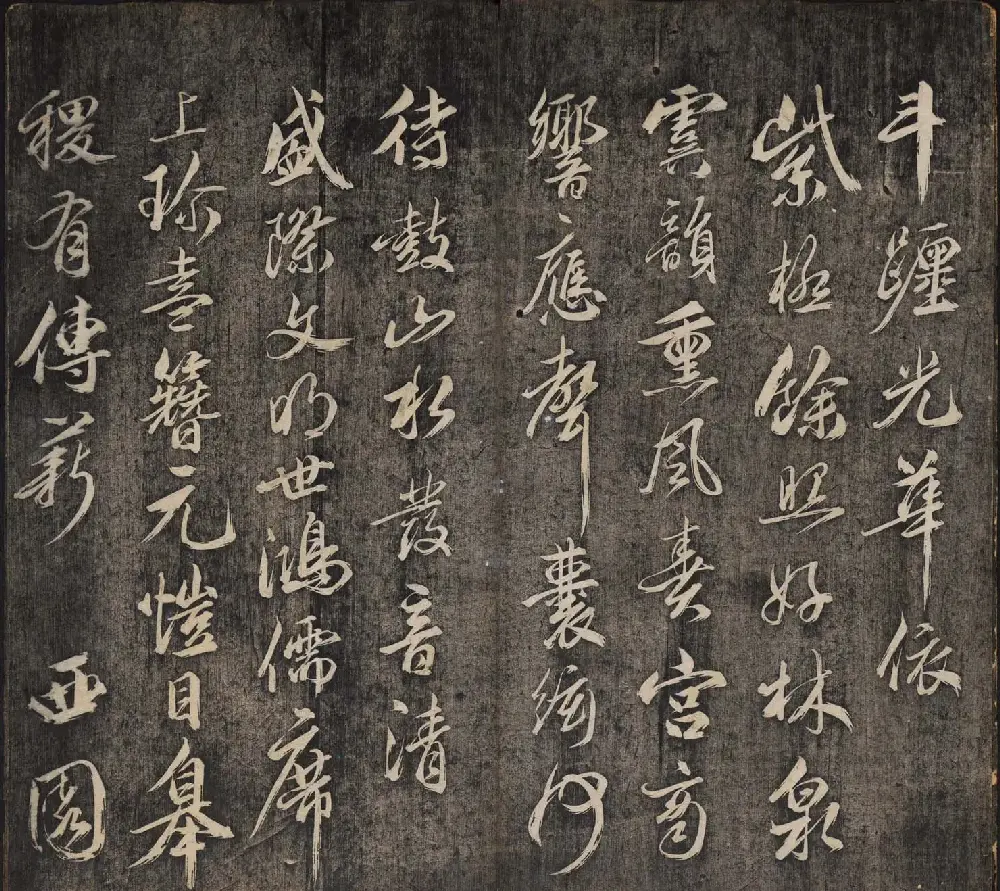 斗躔光華依
紫極餘照好林泉
雲韻熏風奏宮商
響應聲囊絃何
待鼓山水發音清
盛際文明世鴻儒席
上珍盍簪元愷日皋
稷有傳薪 西園